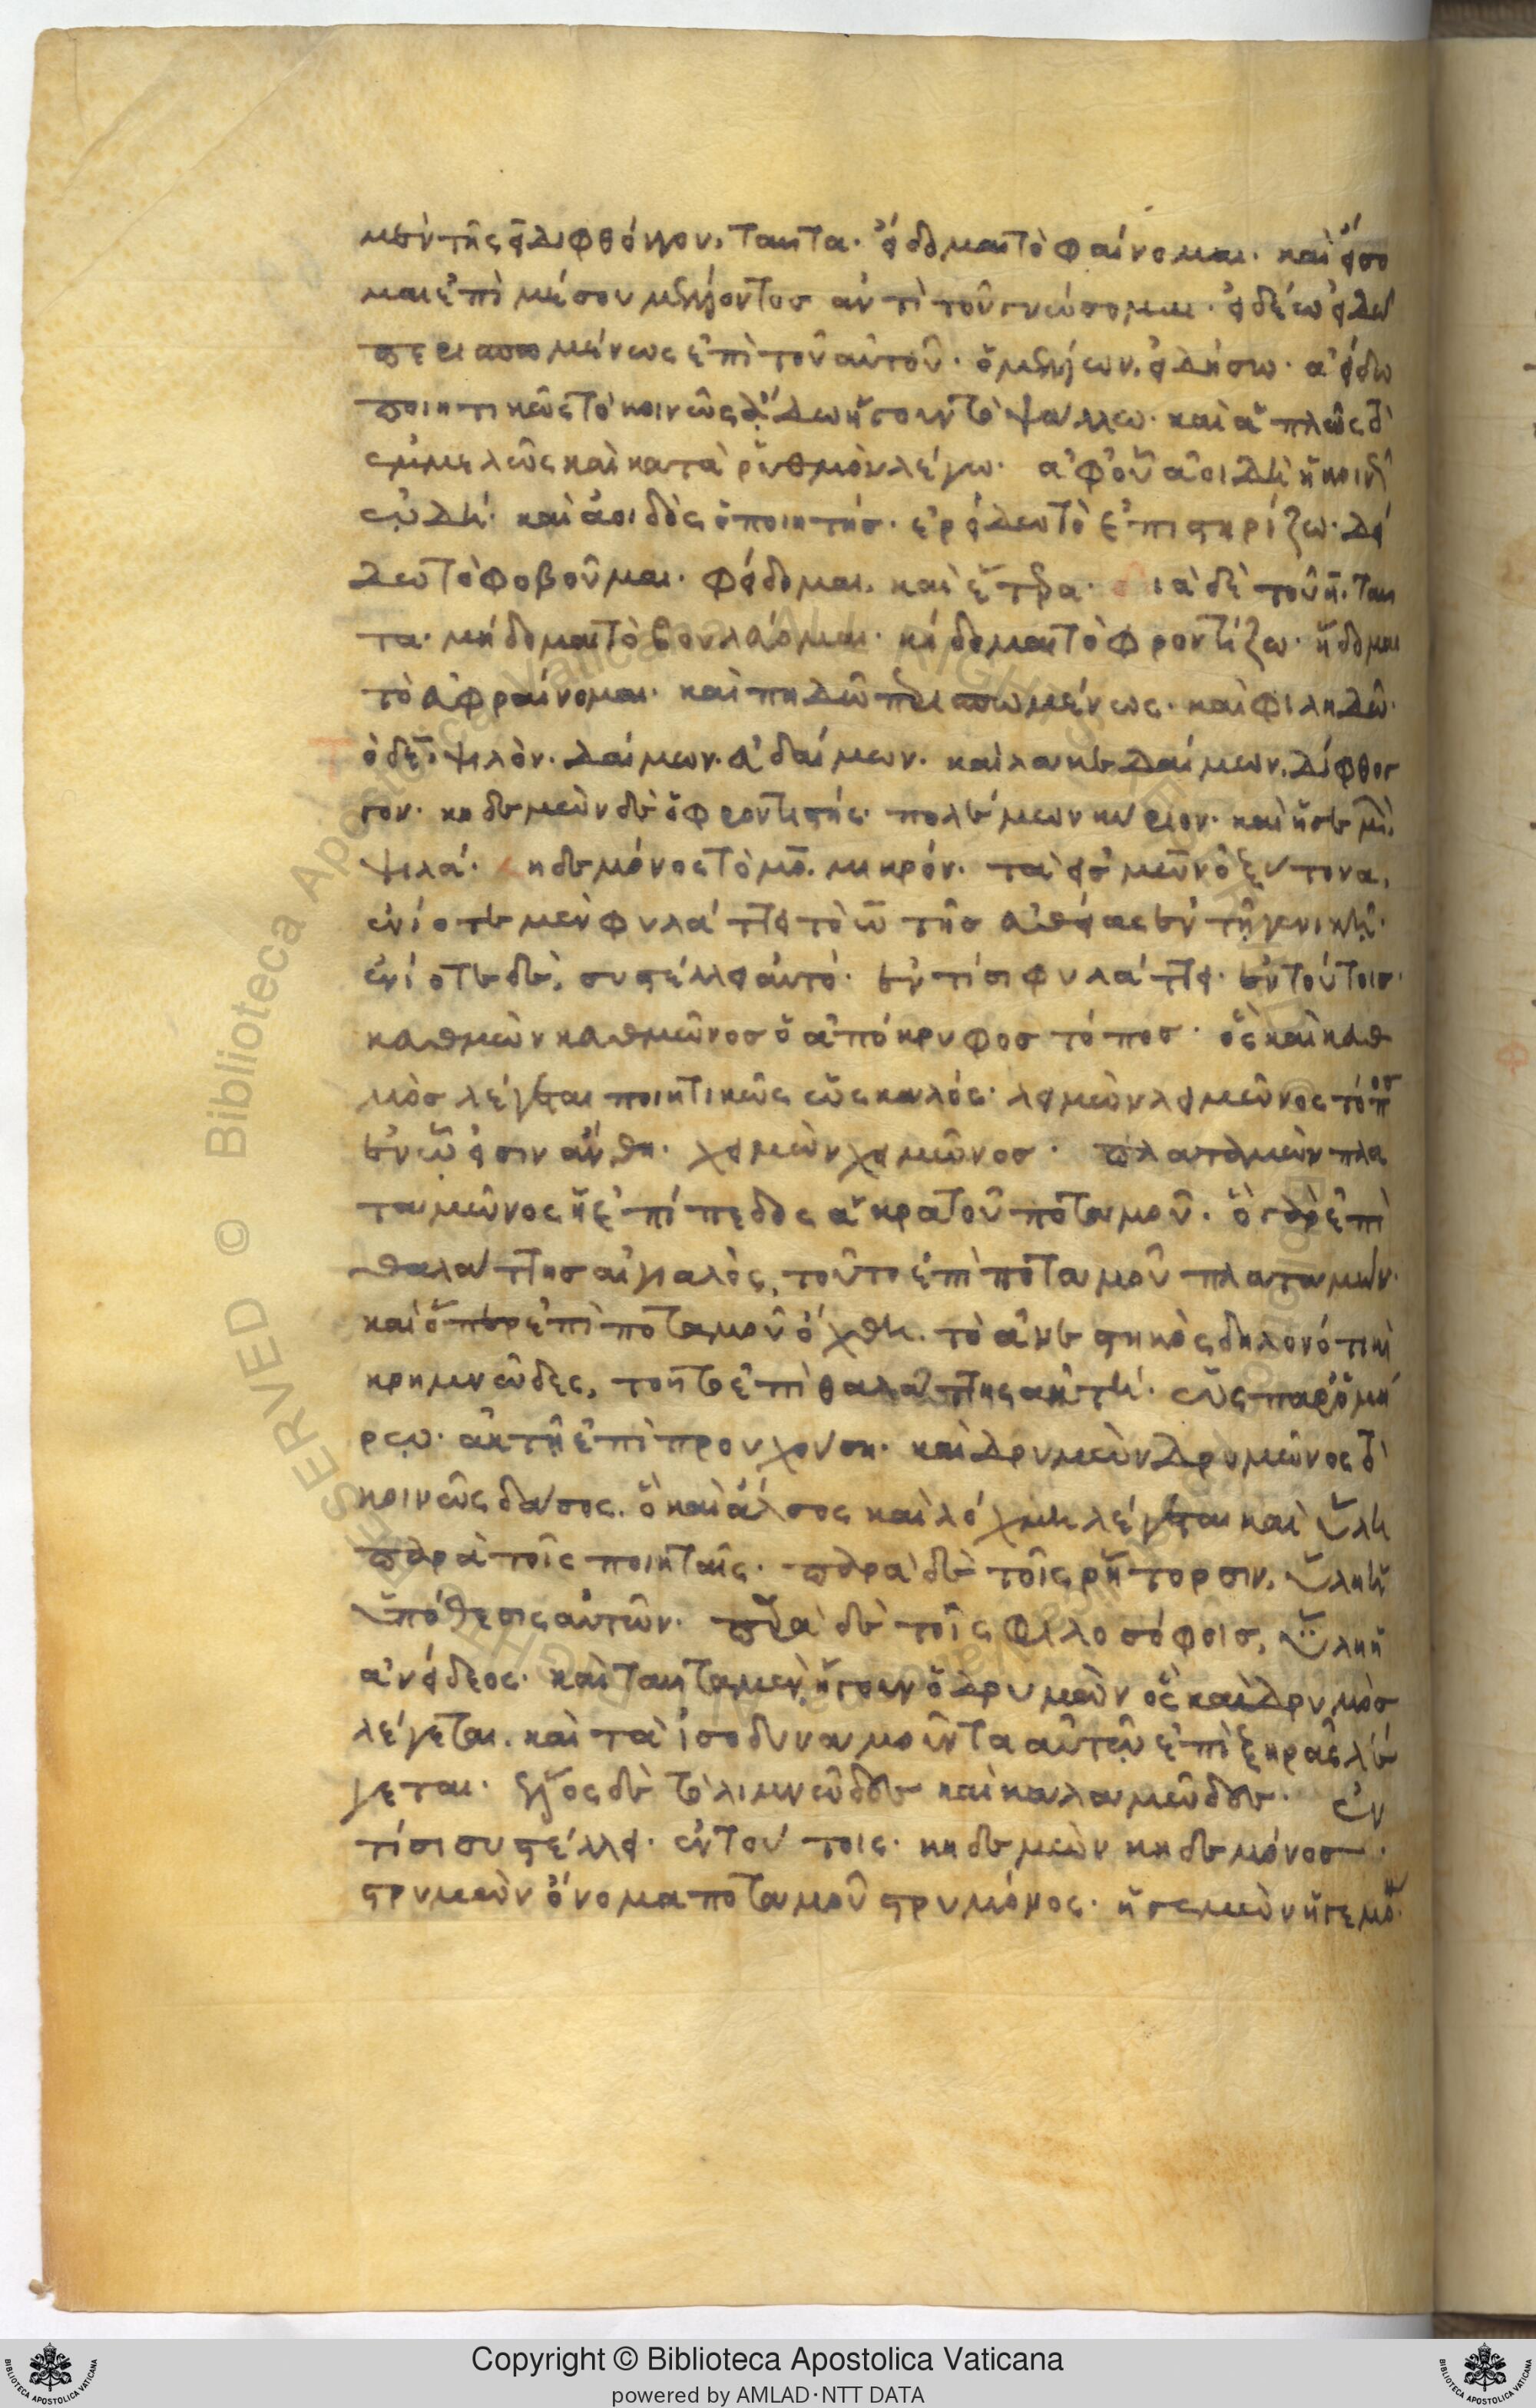 μὲν τῆς ει διφθόγγου, ταῦτα· εἴδομαι τὸ φαίνομαι· καὶ εἴσο
μαι ἐπὶ μέσου μέλλοντος ἀντὶ τοῦ γνώσομαι· εἰδέω εἰδῶ
περισπωμένως ἐπὶ τοῦ αὐτοῦ· ὁ μέλλων, εἰδήσω· ἀείδω
ποιητικῶς τὸ κοινῶς ᾄδω ἤγουν τὸ ψάλλω· καὶ ἁπλῶς τὸ
ἐμμελῶς καὶ κατὰ ῥυθμὸν λέγω· ἀφ' οὗ ἀοιδὴ ἡ κοινῶς
ᾠδή· καὶ ἀοιδὸς ὁ ποιητής· ἐρείδω τὸ ἐπιστηρίζω· δεί
δω τὸ φοβοῦμαι· φείδομαι· καὶ ἕτερα· διὰ δὲ τοῦ η, ταῦ
τα· μήδομαι τὸ βουλεύομαι· κήδομαι τὸ φροντίζω· ἥδομαι
τὸ εὐφραίνομαι· καὶ πηδῶ περισπωμένως· καὶ φιληδῶ·
τὸ δε ϊ ψιλόν· δαίμων· εὐδαίμων· καὶ λακεδαίμων, δίφθογ
γον· κηδεμὼν δὲ ὁ φροντιστής· πολέμων κύριον· καὶ ἡγεμὼν,
ψιλά· κηδεμόνος τὸ μο μικρόν· τὰ εἰς μων ὀξύτονα,
ἐνίοτε μὲν φυλάττει τὸ ω τῆς εὐθείας ἐν τῇ γενικῇ·
ἐνίοτε δὲ, συστέλλει αὐτό· ἐν τίσι φυλάττει· ἐν τούτοις·
κευθμὼν κευθμῶνος ὁ ἀπόκρυφος τόπος· ὃς καὶ κευθ
μὸς λέγεται ποιητικῶς ὡς καλός· λειμὼν λειμῶνος τόπος
ἐν ᾧ εἰσιν ἄνθη· χειμὼν χειμῶνος· πλαταμὼν πλα
ταμῶνος ἡ ἐπίπεδος ἄκρα τοῦ ποταμοῦ· ὃ γὰρ ἐπὶ
θαλάττης αἰγιαλὸς, τοῦτο ἐπὶ ποταμοῦ πλαταμών·
καὶ ὅπερ ἐπὶ ποταμοῦ ὄχθη· τὸ ἀνεστηκὸς δηλονότι καὶ
κρημνῶδες, τοῦτο ἐπὶ θαλάττης ἀκτή· ὡς παρ' ὁμή
ρῳ· ἀκτῇ ἐπὶ προυχούσῃ· καὶ δρυμὼν δρυμῶνος τὸ
κοινῶς δάσος· ὃ καὶ ἄλσος καὶ λόχμη λέγεται καὶ ὕλη
παρὰ τοῖς ποιηταῖς· παρὰ δὲ τοῖς ῥήτορσιν, ὕλη ἡ
ὑπόθεσις αὐτῶν· παρὰ δὲ τοῖς φιλοσόφοις, ὕλη ἡ
ἀνείδεος· καὶ ταῦτα μὲν ἤγουν ὁ δρυμὼν ὃς καὶ δρυμὸς
λέγεται· καὶ τὰ ἰσοδυναμοῦντα αὐτῷ ἐπὶ ξηρᾶς λέ
γεται· ἕλος δὲ τὸ λιμνῶδες καὶ καλαμῶδες· ἐν
τίσι συστέλλει· ἐν τούτοις· κηδεμὼν κηδεμόνος·
στρυμὼν ὄνομα ποταμοῦ στρυμόνος· ἡγεμὼν ἡγεμόνος·
Copyright © Biblioteca Apostolica Vaticana
powered by AMLAD·NTT DATA